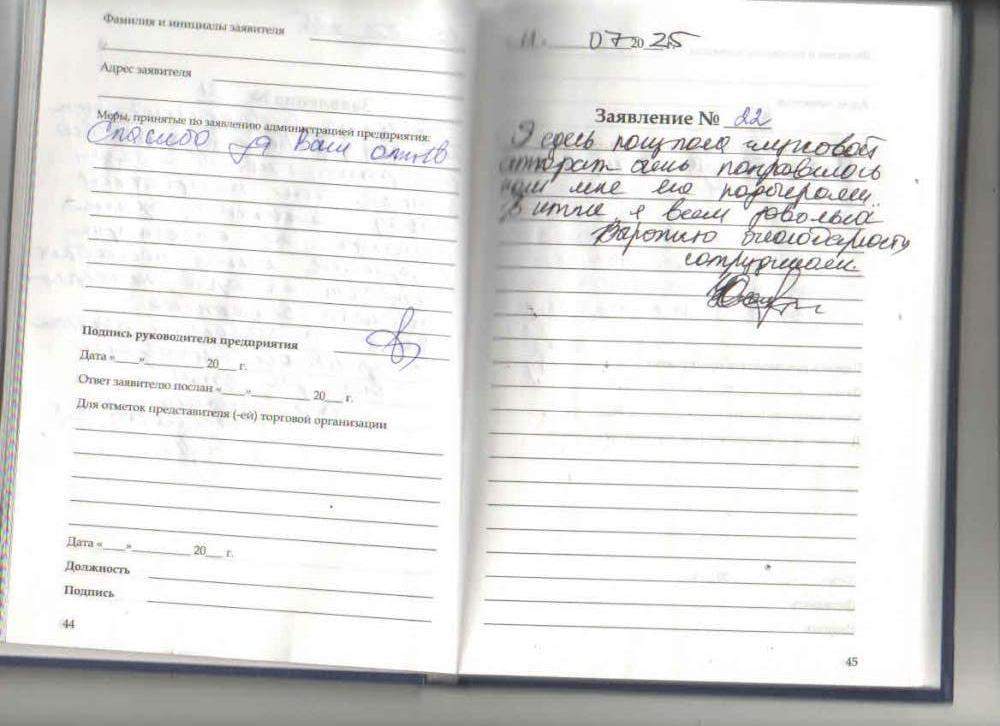 Фамилия и инициалы заявителя
Адрес заявителя
Меры, принятые по заявлению администрацией предприятия:
Спасибо за Ваш отзыв
Подпись руководителя предприятия
Дата «___»__________ 20___ г.
Ответ заявителю послан «___»__________ 20___ г.
Для отметок представителя (-ей) торговой организации
Дата «___»__________ 20___ г.
Должность
Подпись
44
07 2025
Заявление № 22
Я здесь слуховой
аппарат понравилось
мне его подбирали.
В итоге я всем довольна
благодарность
сотрудникам.
45